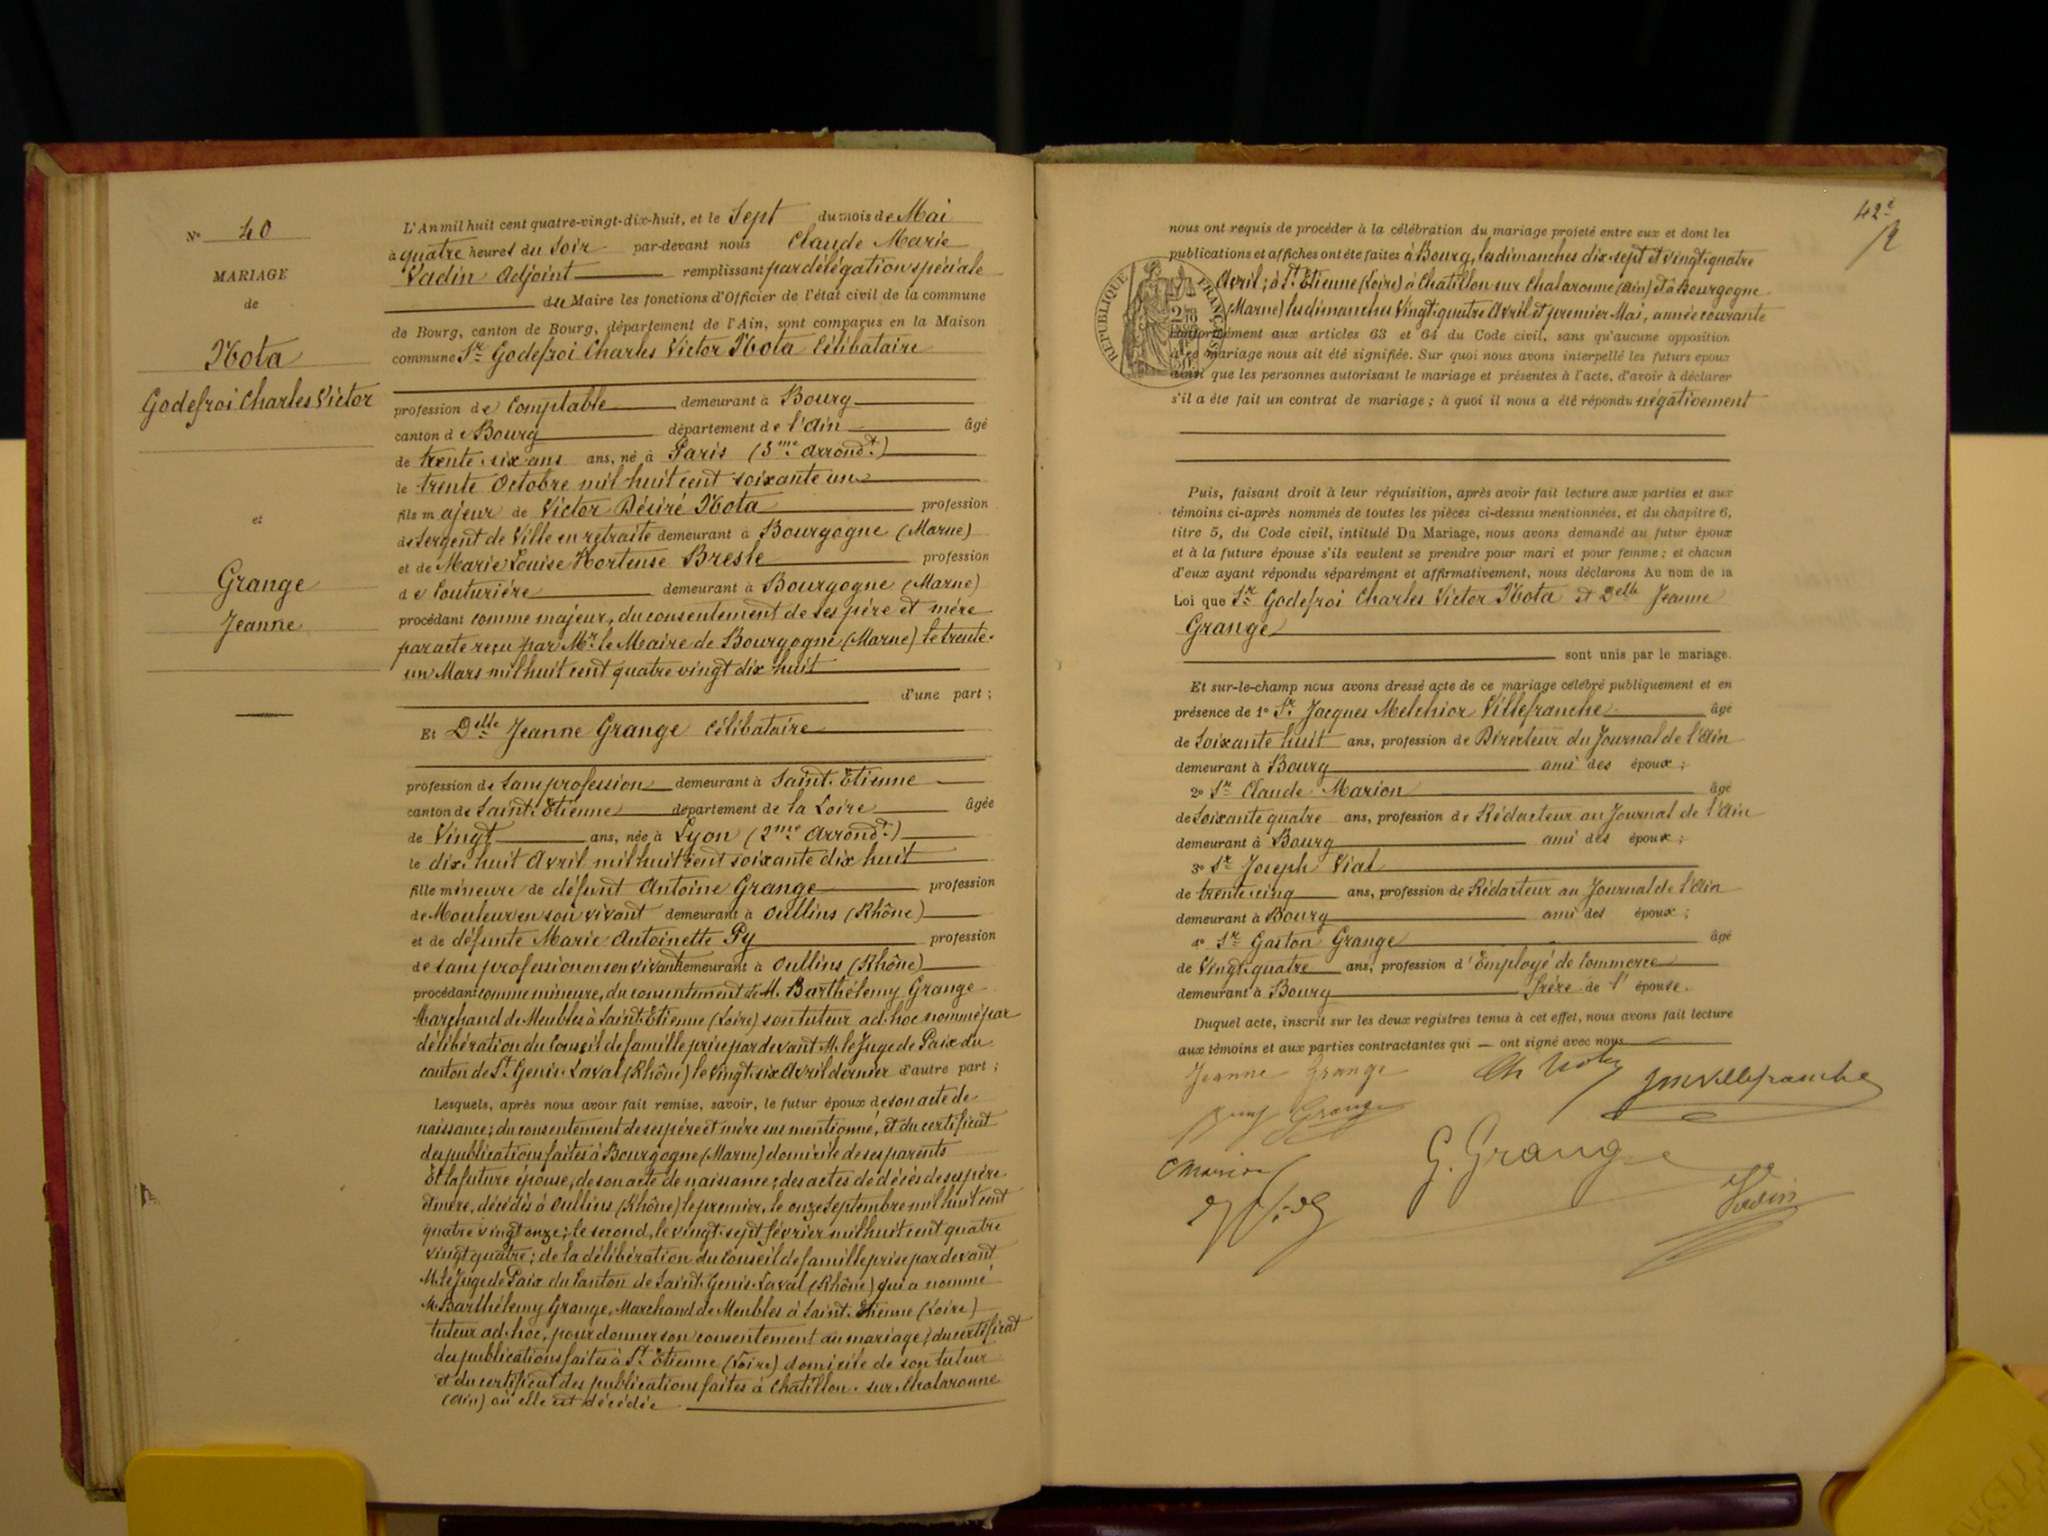 N° 40
MARIAGE
de
Nota
Godefroi Charles Victor
et
Grange
Jeanne
L'An mil huit cent quatre-vingt-dix-huit, et le Sept du mois de Mai
à quatre heures du Soir par-devant nous Claude Marie
Vadin Adjoint remplissant par délégation spéciale
du Maire les fonctions d'Officier de l'état civil de la commune
de Bourg, canton de Bourg, département de l'Ain, sont comparus en la Maison
commune Sr Godefroi Charles Victor Nota Célibataire
profession de Comptable demeurant à Bourg
canton de Bourg département de l'Ain âgé
de trente-six ans ans, né à Paris (5me Arrondt)
le trente Octobre mil huit cent soixante un
fils majeur de Victor Désiré Nota profession
de Sergent de Ville en retraite demeurant à Bourgogne (Marne)
et de Marie Louise Hortense Bresle profession
de Couturière demeurant à Bourgogne (Marne)
procédant comme majeur, du consentement de ses père et mère
par acte reçu par Mr le Maire de Bourgogne (Marne) le trente-
un Mars mil huit cent quatre vingt dix huit
d'une part ;
Et Delle Jeanne Grange Célibataire
profession de Sans profession demeurant à Saint-Etienne
canton de Saint-Etienne département de la Loire âgée
de Vingt ans, née à Lyon (2me Arrondt)
le dix-huit Avril mil huit cent soixante dix huit
fille mineure de défunt Antoine Grange profession
de Mouleur en son vivant demeurant à Oullins (Rhône)
et de défunte Marie Antoinette Py profession
de sans profession en son vivant demeurant à Oullins (Rhône)
procédant comme mineure, du consentement de M. Barthélemy Grange
Marchand de Meubles à Saint-Etienne (Loire) son tuteur ad-hoc nommé par
délibération du Conseil de famille prise par devant M. le Juge de Paix du
canton de St Genis-Laval (Rhône) le vingt-six Avril dernier d'autre part ;
Lesquels, après nous avoir fait remise, savoir, le futur époux de son acte de
naissance ; du consentement de ses père et mère sus mentionné, et du certificat
des publications faites à Bourgogne (Marne) domicile de ses parents
Et la future épouse, de son acte de naissance ; des actes de décès de ses père
et mère, décédés à Oullins (Rhône) le premier, le onze Septembre mil huit cent
quatre vingt onze ; le second, le vingt-sept février mil huit cent quatre
vingt quatre ; de la délibération du Conseil de famille prise par devant
M. le Juge de Paix du Canton de Saint-Genis-Laval (Rhône) qui a nommé
M. Barthélemy Grange, Marchand de Meubles à Saint-Etienne (Loire)
tuteur ad-hoc, pour donner son consentement au mariage ; du certificat
des publications faites à St Etienne (Loire) domicile de son tuteur
et du certificat des publications faites à Chatillon-sur-Chalaronne
(Ain) où elle est décédée
42e
nous ont requis de procéder à la célébration du mariage projeté entre eux et dont les
publications et affiches ont été faites à Bourg, les dimanches dix-sept et vingt-quatre
Avril ; à St Etienne (Loire) à Chatillon sur Chalaronne (Ain) et à Bourgogne
(Marne) les dimanches Vingt-quatre Avril et premier Mai, année courante
conformément aux articles 63 et 64 du Code civil, sans qu'aucune opposition
à ce mariage nous ait été signifiée. Sur quoi nous avons interpellé les futurs époux
ainsi que les personnes autorisant le mariage et présentes à l'acte, d'avoir à déclarer
s'il a été fait un contrat de mariage ; à quoi il nous a été répondu négativement
RÉPUBLIQUE FRANÇAISE
Puis, faisant droit à leur réquisition, après avoir fait lecture aux parties et aux
témoins ci-après nommés de toutes les pièces ci-dessus mentionnées, et du chapitre 6,
titre 5, du Code civil, intitulé Du Mariage, nous avons demandé au futur époux
et à la future épouse s'ils veulent se prendre pour mari et pour femme ; et chacun
d'eux ayant répondu séparément et affirmativement, nous déclarons Au nom de la
Loi que Sr Godefroi Charles Victor Nota et Delle Jeanne
Grange
sont unis par le mariage.
Et sur-le-champ nous avons dressé acte de ce mariage célébré publiquement et en
présence de 1° Sr Jacques Melchior Villefranche âgé
de Soixante huit ans, profession de Directeur du Journal de l'Ain
demeurant à Bourg ami des époux ;
2° Sr Claude Marion âgé
de Soixante quatre ans, profession de Rédacteur au Journal de l'Ain
demeurant à Bourg ami des époux ;
3° Sr Joseph Vial
de trente-cinq ans, profession de Rédacteur au Journal de l'Ain
demeurant à Bourg ami des époux ;
4° Sr Gaston Grange âgé
de Vingt-quatre ans, profession d'Employé de Commerce
demeurant à Bourg frère de l'épouse.
Duquel acte, inscrit sur les deux registres tenus à cet effet, nous avons fait lecture
aux témoins et aux parties contractantes qui — ont signé avec nous
Jeanne Grange
Ch Nota
JM Villefranche
Grange
G. Grange
C Marion
Vadin